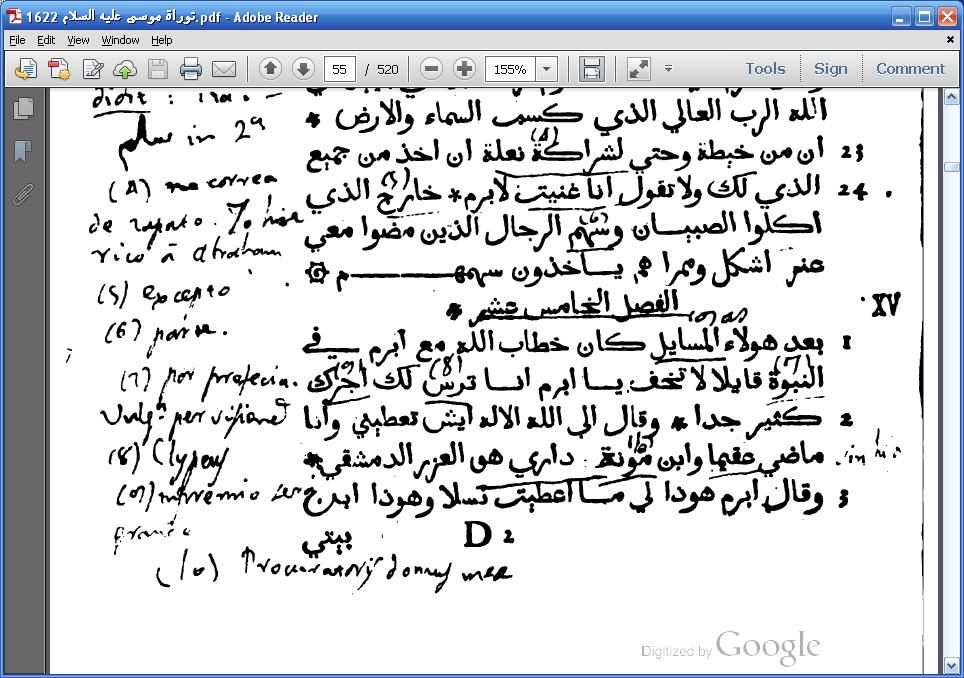 توراة موسى عليه السلام 1622.pdf - Adobe Reader
File Edit View Window Help
55 / 520 155% Tools Sign Comment
الله الرب العالي الذي كسب السماء والارض *
plus in 2ª
23 ان من خيطة وحتي لشراكة نعلة ان اخذ من جميع
(4)
24 الذي لك ولا تقول انا غنيت لابرم * خارج الذي
(5)
de zapato.
اكلوا الصبيان وسهم الرجال الذين مضوا معي
(6)
rico à Abraham
عنر اشكل وممرا هم ياخذون سهمهم
(5) excepto
الفصل الخامس عشر *
XV
(6) parte.
1 بعد هولاء المسايل كان خطاب الله مع ابرم في
(7) por profecia.
النبوة قايلا لا تخف يا ابرم انا ترس لك اجرك
(7) (8) (9)
2 كثير جدا * وقال الي الله الاله ايش تعطيني وانا
(8) Clypeus
ماضي عقيما وابن مؤنة داري هو العزر الدمشقي *
(10)
(9)
3 وقال ابرم هودا لي ما اعطيت نسلا وهودا ابن
D 2
بيتي
(10) Procuratoris domus meae
Digitized by Google